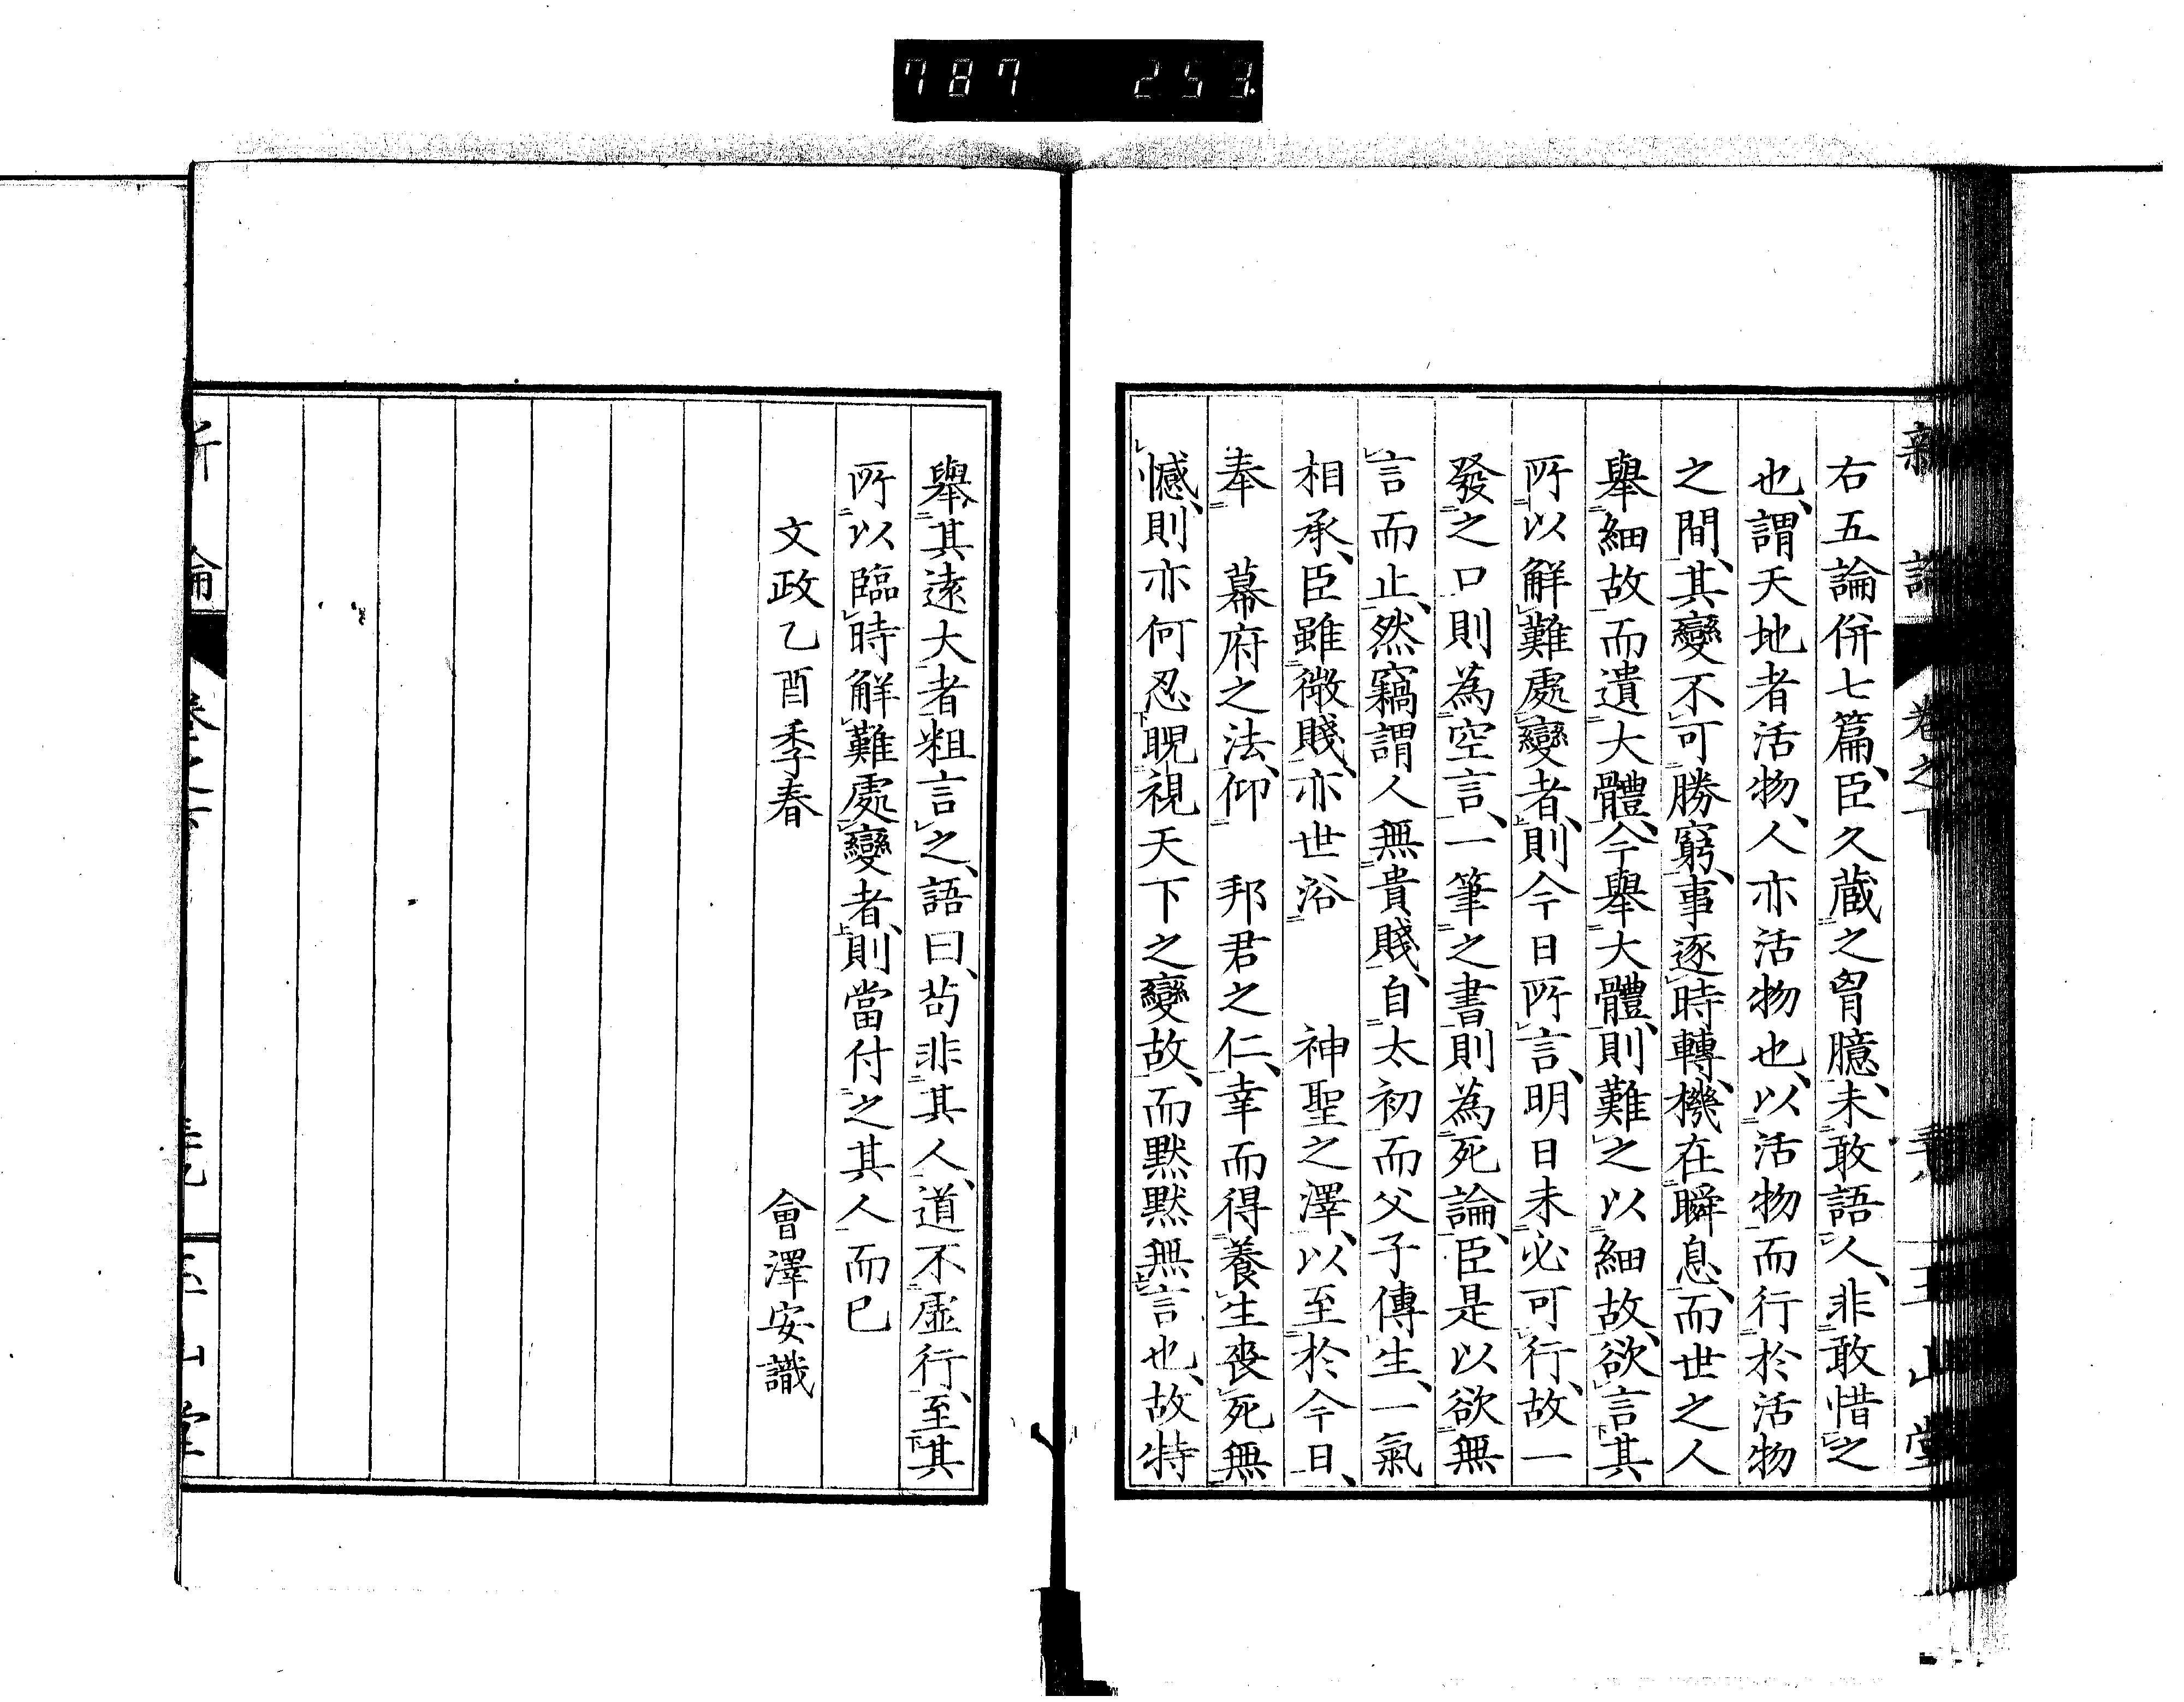 787 253
新論 卷之下 玉山堂
右五論併七篇、臣久藏之胷臆、未敢語人、非敢惜之
也、謂天地者活物、人亦活物也、以活物而行於活物
之間、其變不可勝窮、事逐時轉、機在瞬息、而世之人
舉細故而遺大體、今舉大體、則難之以細故、欲言其
所以解難處變者、則今日所言、明日未必可行、故一
發之口則為空言、一筆之書則為死論、臣是以欲無
言而止、然竊謂人無貴賤、自太初而父子傳生、一氣
相承、臣雖微賤、亦世浴 神聖之澤、以至於今日、
奉 幕府之法、仰 邦君之仁、幸而得養生喪死無
憾、則亦何忍睨視天下之變故、而默默無言也、故特
舉其遠大者粗言之、語曰、苟非其人、道不虛行、至其
所以臨時解難處變者、則當付之其人而已
文政乙酉季春 會澤安識